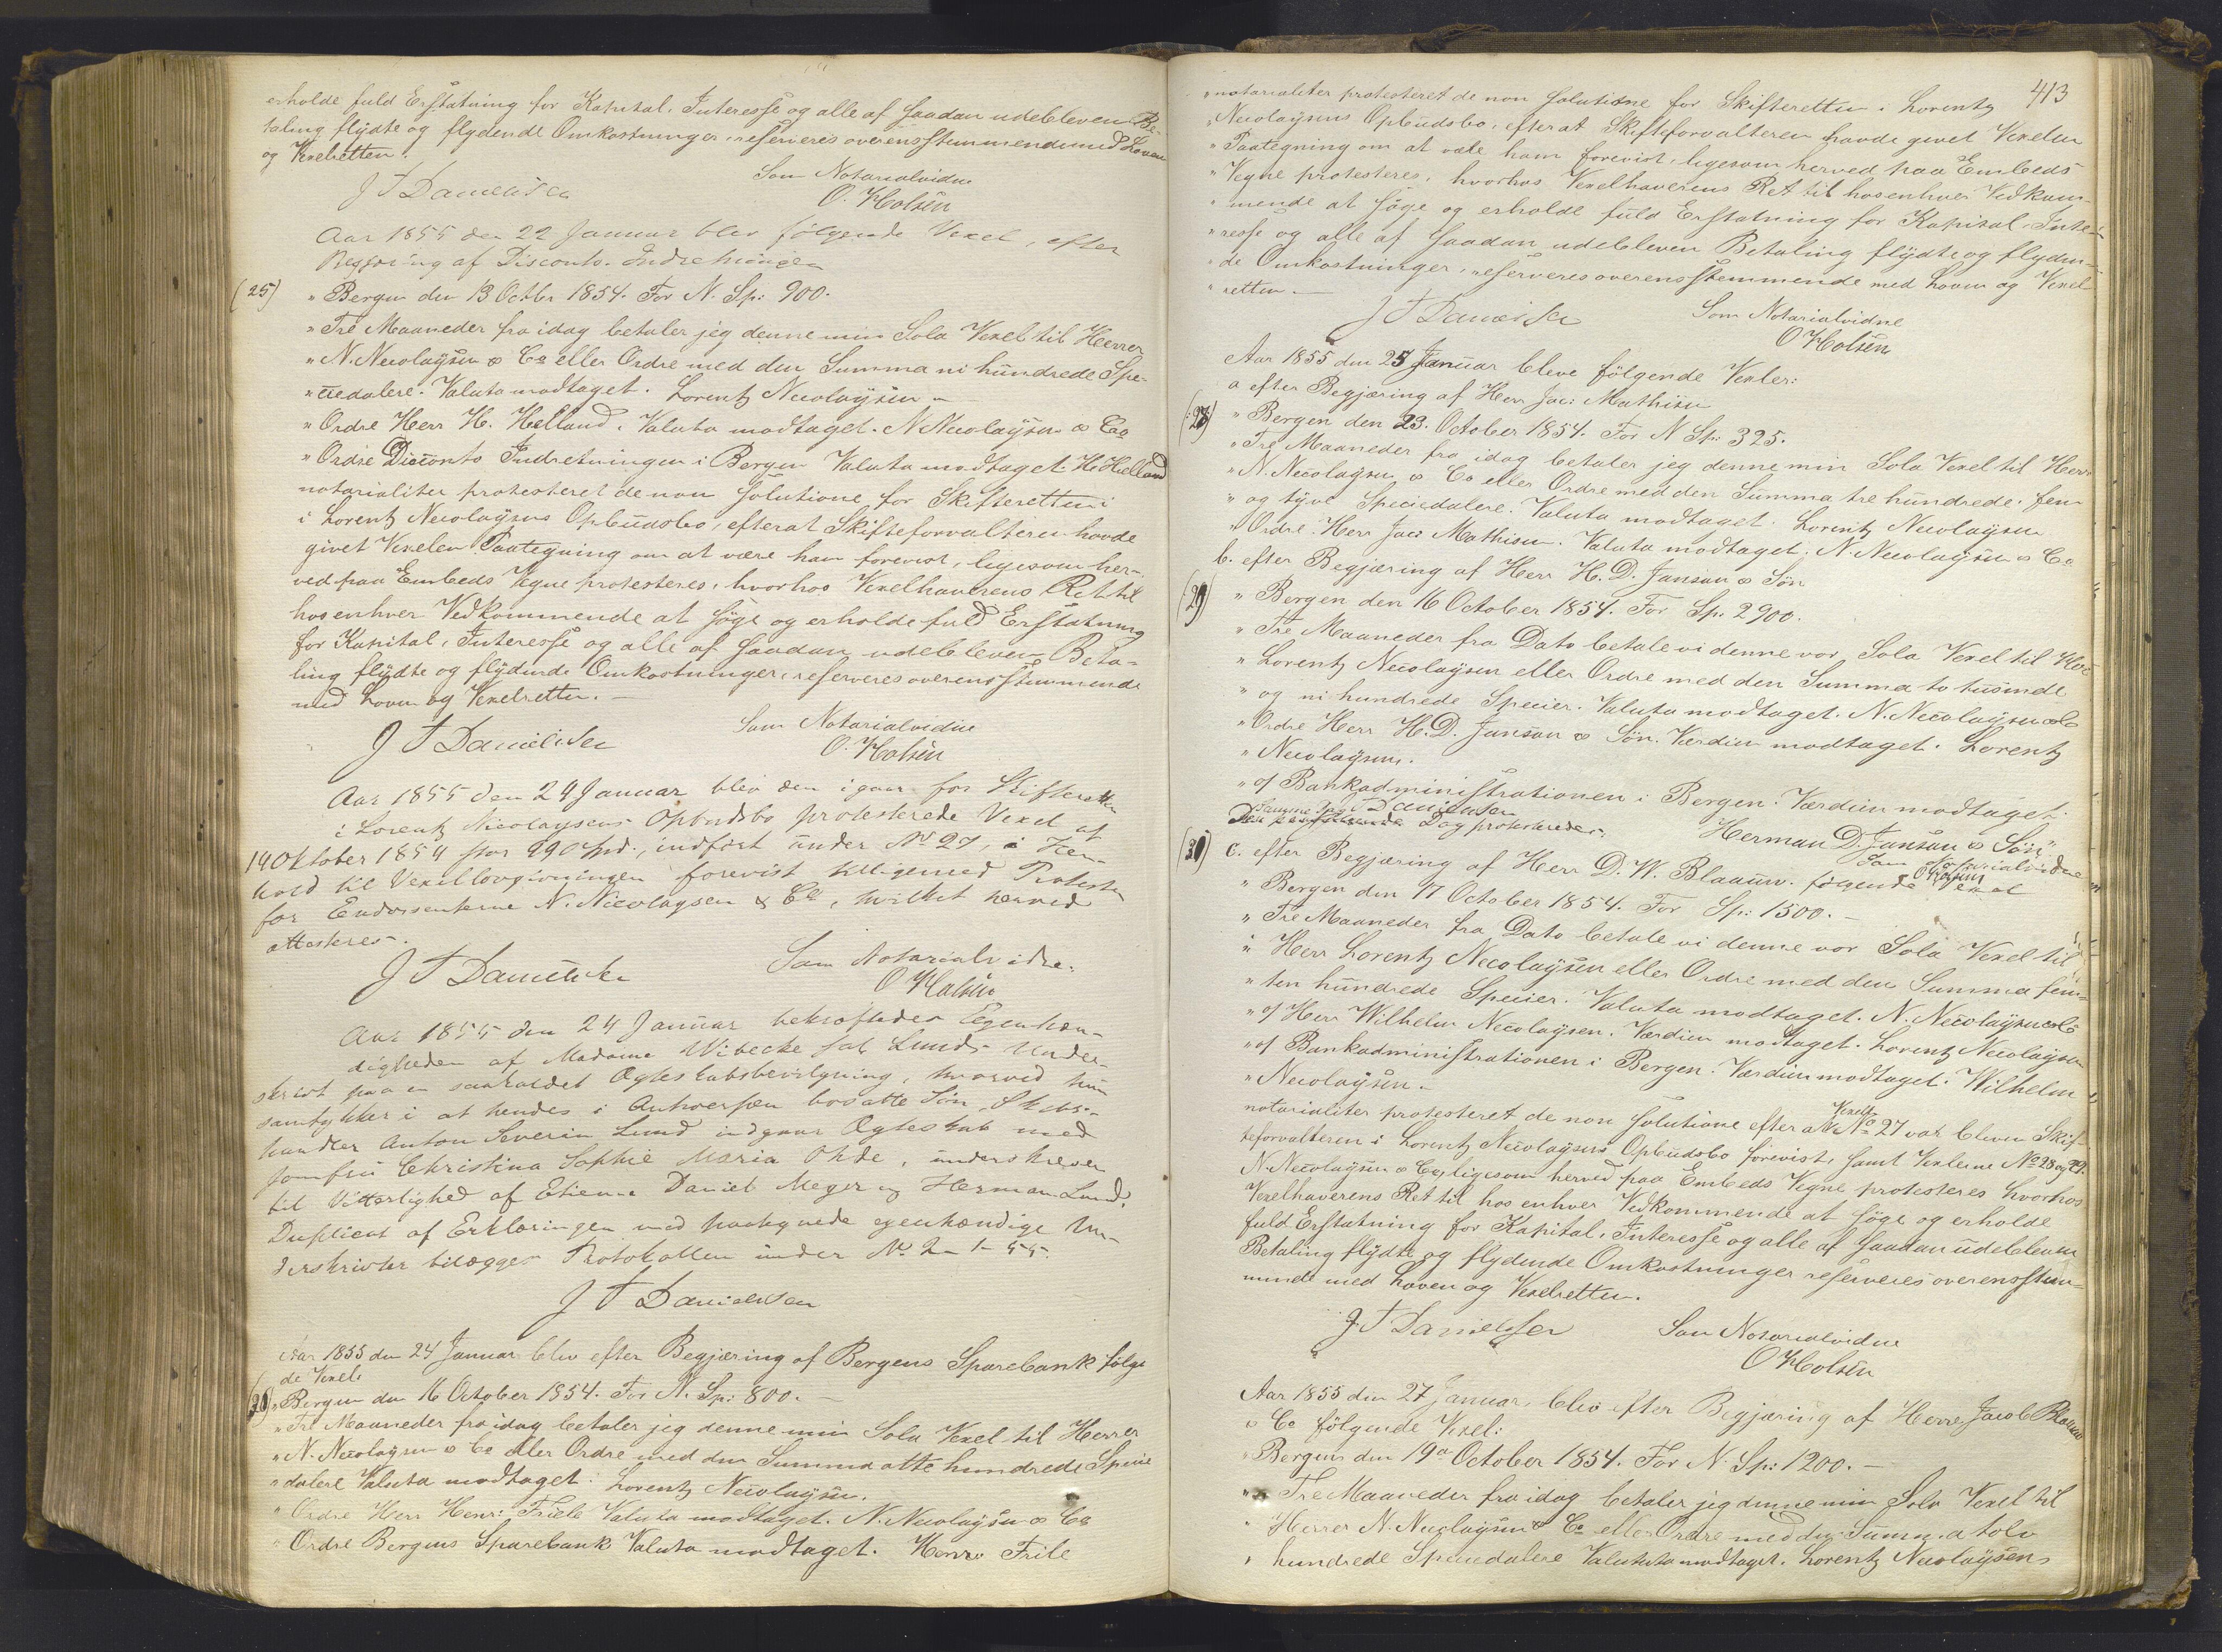 erholde fuld Erstatning for Kapital, Interesse og alle af saadan udebleven Be-
taling flydte og flydende Omkostninger, reserveres overensstemmende med Loven
og Vexelretten.
Som Notarialvidne
J T Danielssen O. Holsen
Aar 1855 den 22 Januar blev følgende Vexel, efter
Begjæring af Disconto-Indretningen
(25) " Bergen den 13 Octbr 1854. For N. Sp: 900.
" Tre Maaneder fra idag betaler jeg denne min Sola Vexel til Herrer
" N. Nicolaysen & Co eller Ordre med den Summa ni hundrede Spe-
" ciedalere. Valuta modtaget. Lorentz Nicolaysen –
" Ordre Herr H. Helland. Valuta modtaget. N Nicolaysen & Co
" Ordre Disconto Indretningen i Bergen Valuta modtaget H. Helland
notarialiter protesteret de non solutione for Skifteretten i
i Lorentz Nicolaysens Opbudsbo, efterat Skifteforvalteren havde
givet Vexelen Paategning om at være ham forevist, ligesom her-
ved paa Embeds Vegne protesteres, hvorhos Vexelhaverens Ret til
hos enhver Vedkommende at søge og erholde fuld Erstatning
for Kapital, Interesse og alle af saadan udebleven Beta-
ling flydte og flydende Omkostninger, reserveres overensstemmende
med Loven og Vexelretten. –
Som Notarialvidne
J T Danielssen O. Holsen
Aar 1855 den 24 Januar blev den igaar for Skifteretten
i Lorentz Nicolaysens Opbudsbo protesterede Vexel af
14 Oktober 1854 stor 990 Spd., indført under No 27, i Hen-
hold til Vexellovgivningen forevist tilligemed Protesten
for Endossenterne N. Nicolaysen & Co, hvilket herved
attesteres.
Som Notarialvidne.
J T Danielssen O Holsen
Aar 1855 den 24 Januar bekræftedes Egenhæn-
digheden af Madame Wibecke sal. Lunds Under-
skrivt paa en saakaldet Ægteskabsbevilgning, hvorved hun
samtykker i at hendes i Antwerpen bosatte Søn, Skibs-
handler Anton Severin Lund indgaar Ægteskab med
Jomfru Christina Sophie Maria Ohde, underskreven
til Vitterlighed af Etienne Daniel Meyer og Herman Lund.
Duplicat af Erklæringen med paategnede egenhændige Un-
derskrivter bilægges Protokollen under No 2–1–55.
J T Danielssen
Aar 1855 den 24 Januar blev efter Begjæring af Bergens Sparebank følge
de Vexel:
" Bergen den 16 October 1854. For N. Sp: 800. –
" Tre Maaneder fra idag betaler jeg denne min Sola Vexel til Herrer
" N. Nicolaysen & Co eller Ordre med den Summa otte hundrede Specie
" dalere Valuta modtaget. Lorentz Nicolaysen.
" Ordre Herr Henr: Friele Valuta modtaget. N. Nicolaysen & Co
" Ordre Bergens Sparebank Valuta modtaget. Henr: Friele
413
" notarialiter protesteret de non solutione for Skifteretten i Lorentz
" Nicolaysens Opbudsbo, efterat Skifteforvalteren havde givet Vexelen
" Paategning om at være ham forevist, ligesom herved paa Embeds
" Vegne protesteres, hvorhos Vexelhaverens Ret til hos enhver Vedkom-
" mende at søge og erholde fuld Erstatning for Kapital, Inte-
" resse og alle af saadan udebleven Betaling flydte og flyden-
" de Omkostninger, reserveres overensstemmende med Loven og Vexel-
" retten. –
Som Notarialvidne
J T Danielssen O Holsen
Aar 1855 den 25 Januar bleve følgende Vexler:
a efter Begjæring af Herr Jac: Mathisen
" Bergen den 23. October 1854. For N Sp: 325.
" Tre Maaneder fra idag betaler jeg denne min Sola Vexel til Herr
" N. Nicolaysen & Co eller Ordre med den Summa tre hundrede fem
" og tyve Speciedalere. Valuta modtaget. Lorentz Nicolaysen
" Ordre Herr Jac: Mathisen. Valuta modtaget. N. Nicolaysen & Co
b. efter Begjæring af Herr H. D. Janson & Søn
(29) " Bergen den 16 October 1854. For Sp: 2900.
" Tre Maaneder fra Dato betale vi denne vor Sola Vexel til Herr
" Lorentz Nicolaysen eller Ordre med den Summa to tusinde
" og ni hundrede Specier. Valuta modtaget. N. Nicolaysen & Co
" Ordre Herr H. D. Janson & Søn. Værdien modtaget. Lorentz
" Nicolaysen.
" o/ Bankadministrationen i Bergen. Værdien modtaget.
Herman D. Janson & Søn"
samme Dag protesteredes.
Som Notarialvidne
O Holsen
c. efter Begjæring af Herr D. W. Blaauw følgende Vexel
" Bergen den 17 October 1854. For Sp: 1500. –
" Tre Maaneder fra Dato betale vi denne vor Sola Vexel til
" Herr Lorentz Nicolaysen eller Ordre med den Summa fem-
" ten hundrede Specier. Valuta modtaget. N. Nicolaysen & Co
" o/ Herr Wilhelm Nicolaysen. Værdien modtaget. Lorentz Nicolaysen
" o/ Bankadministrationen i Bergen. Værdien modtaget. Wilhelm
" Nicolaysen –
notarialiter protesteret de non solutione efter at Vexel No 27 var bleven Skif-
teforvalteren i Lorentz Nicolaysens Opbudsbo forevist, samt Vexlerne No 28 og 29.
N. Nicolaysen & Co, ligesom herved paa Embeds Vegne protesteres hvorhos
Vexelhaverens Ret til hos enhver Vedkommende at søge og erholde
fuld Erstatning for Kapital, Interesse og alle af saadan udebleven
Betaling flydte og flydende Omkostninger reserveres overensstem-
mende med Loven og Vexelretten.
J. T Danielssen Som Notarialvidne
O Holsen
Aar 1855 den 27 Januar, blev efter Begjæring af Herrer Jacob Blaauw
& Co følgende Vexel:
" Bergen den 19de October 1854. For N. Sp: 1200. –
" Tre Maaneder fra idag betaler jeg denne min Sola Vexel til
" Herrer N. Nicolaysen & Co eller Ordre med den Summa tolv
" hundrede Speciedalere Valututa modtaget. Lorentz Nicolaysen